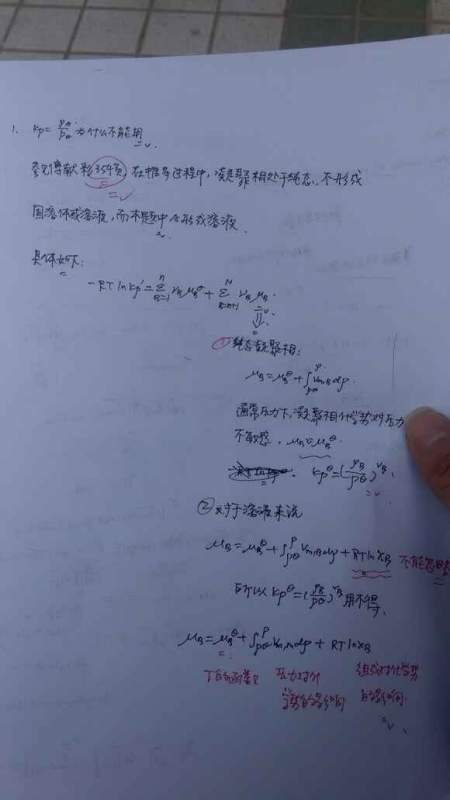 1. Kp = PB/Pθ 为什么不能用
参见傅献彩354页,在推导过程中,凝聚相处于纯态,不形成
固溶体或溶液,而本题中形成溶液
具体如下:
-RT ln Kp' = Σ(B=1→n) νB μB^θ + Σ(B=n+1→N) νB μB
① 纯态凝聚相:
μB = μB^θ + ∫(p^θ→p) Vm,B dp
通常压力下,凝聚相化学势对压力
不敏感,μB ≈ μB^θ
Kp^θ = (PB/P^θ)^νB
② 对于溶液来说
μB = μB^θ + ∫(p^θ→p) Vm,B dp + RT ln xB 不能忽略
所以 Kp^θ = (PB/P^θ)^νB 用不得
μB = μB^θ + ∫(p^θ→p) Vm dp + RT ln xB
T的函数 压力对化 组成对化学势
学势的影响 的影响